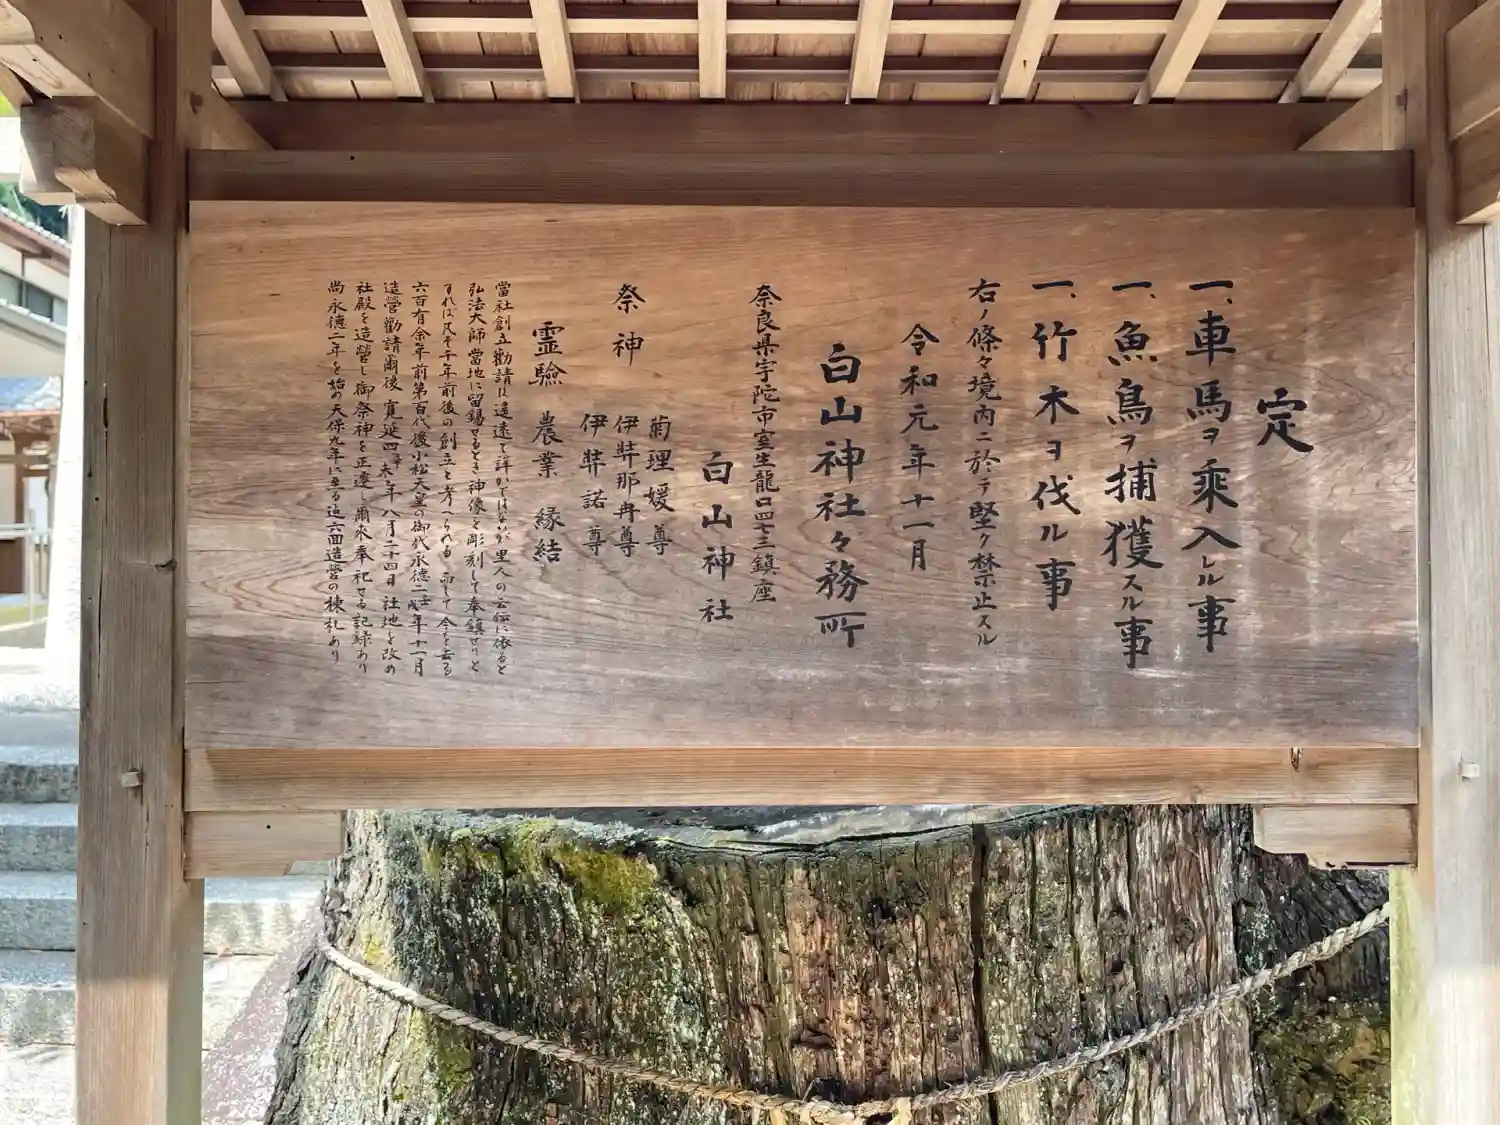 定
一、車馬ヲ乘入レル事
一、魚鳥ヲ捕獲スル事
一、竹木ヲ伐ル事
右ノ條々境内ニ於テ堅ク禁止スル
令和元年十一月
白山神社々務所
奈良県宇陀市室生龍口四七三鎮座
白山神社
祭神
菊理媛尊
伊弉那冉尊
伊弉諾尊
霊驗 農業 縁結
當社創立勸請は遥遠て詳かではないが里人の云伝に依ると
弘法大師當地に留錫せるとき神像を彫刻して奉鎮せりと
すれば凡そ千年前後の創立と考へられる 而して今を去る
六百有余年前第百代後小松天皇の御代永德二壬戌年十一月
造營勸請爾後寛延四辛未年八月二十四日社地を改め
社殿を造營し御祭神を正遷し爾来奉祀せる記録あり
尚永德二年を始め天保九年に至る迄六回造營の棟札あり